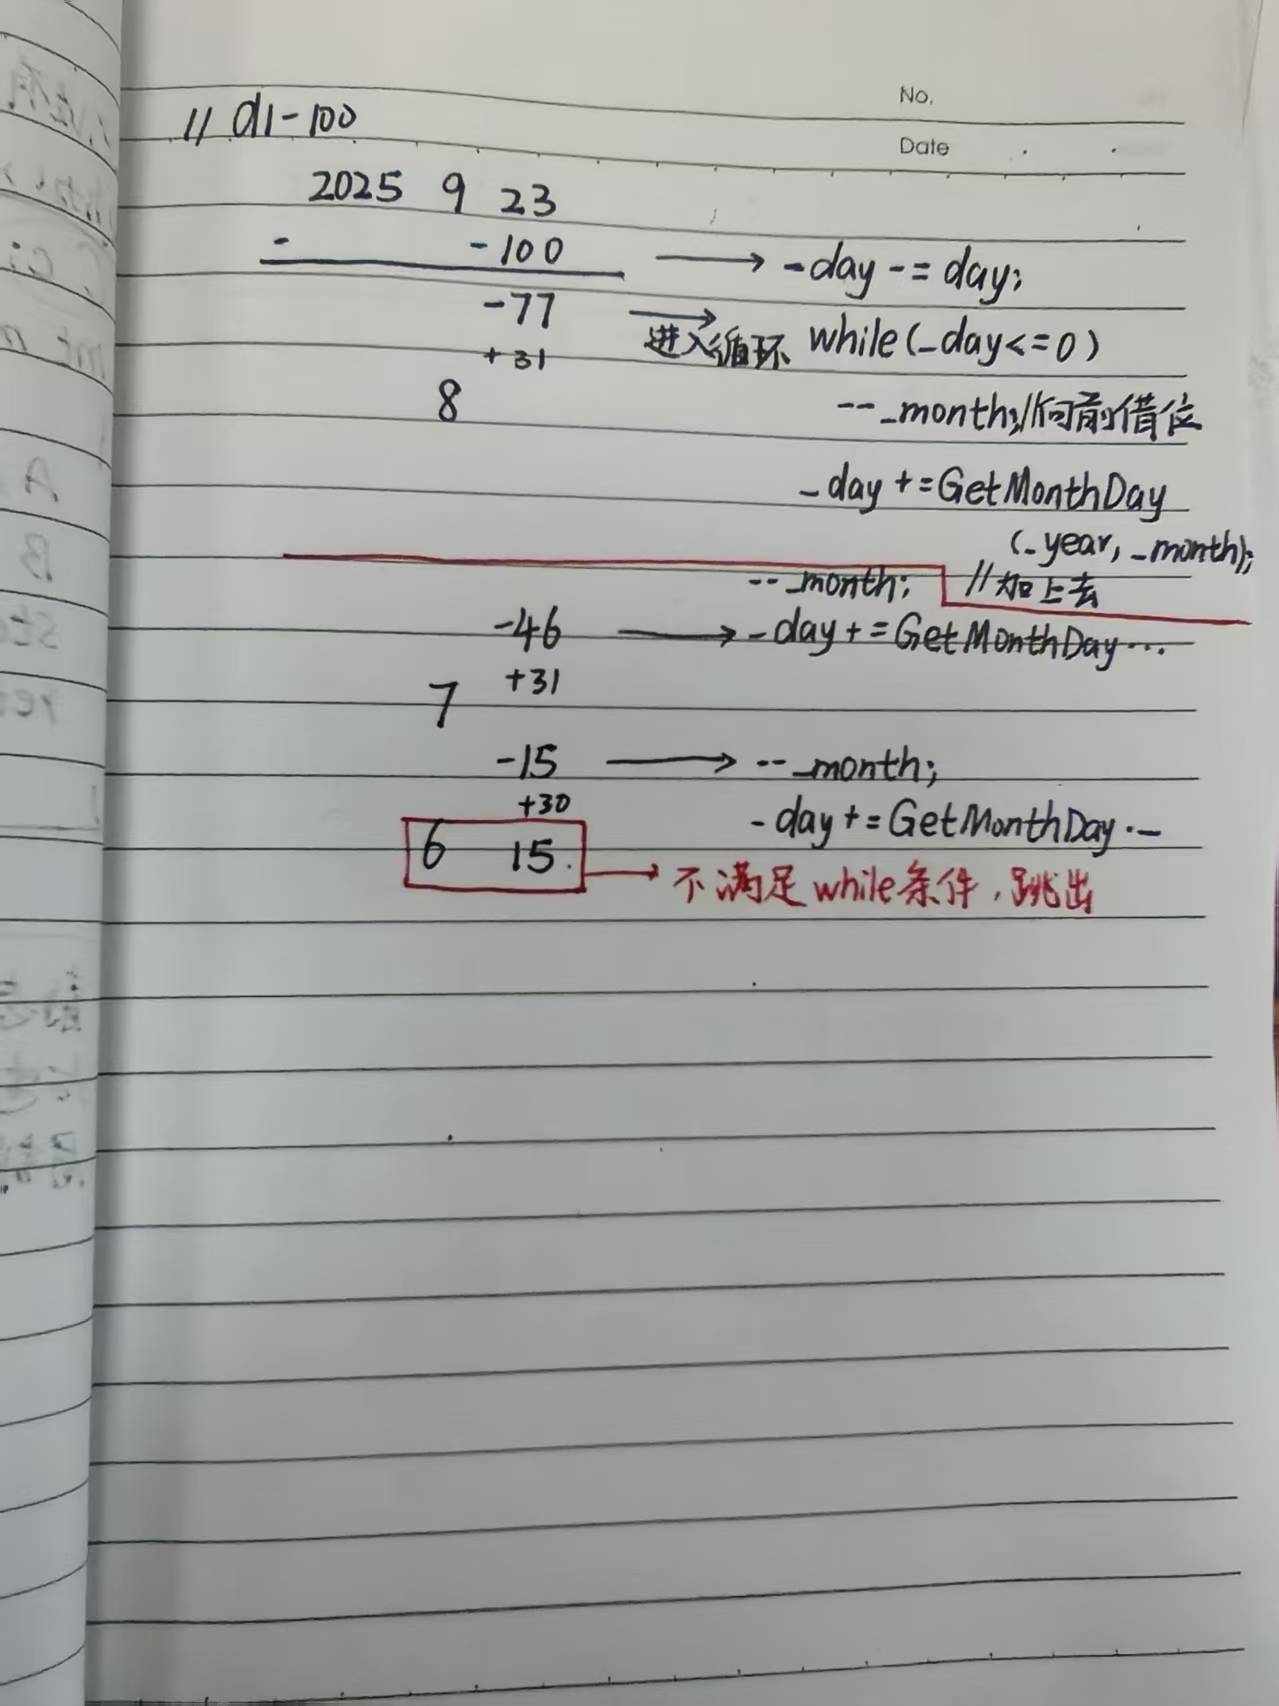 No.
// d1-100
Date
2025 9 23
- -100 → _day -= day;
-77 → 进入循环 while(_day<=0)
+31
8 --_month;//向前借位
_day += GetMonthDay
(_year, _month);
--_month; //加上去
-46 → _day += GetMonthDay...
+31
7
-15 → --_month;
+30
_day += GetMonthDay...
6 15
→ 不满足while条件,跳出